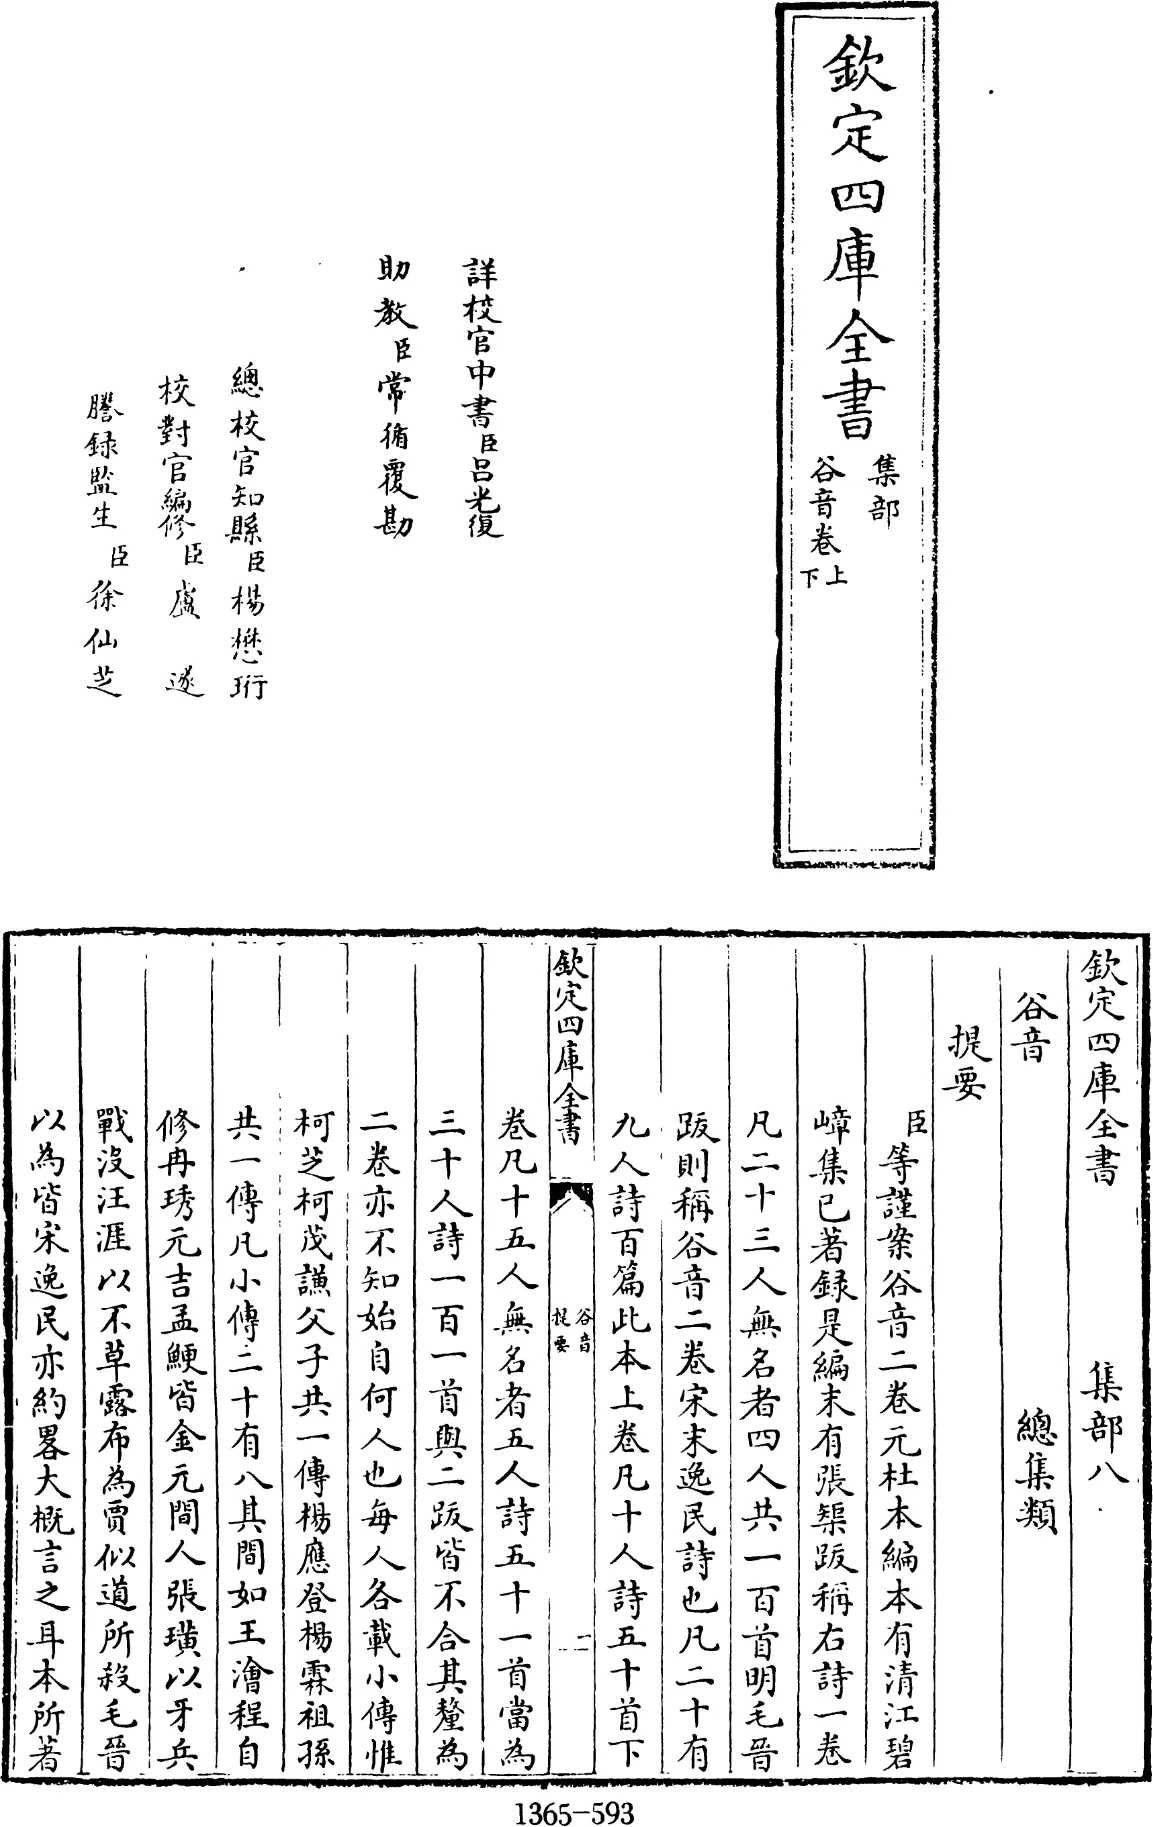 欽定四庫全書
集部
谷音卷上
下
詳校官中書臣呂光復
助教臣常循覆勘
總校官知縣臣楊懋珩
校對官編修臣盧遂
謄録監生臣徐仙芝
欽定四庫全書 集部八
谷音 總集類
提要
臣等謹案谷音二卷元杜本編本有清江碧
嶂集已著録是編末有張榘跋稱右詩一卷
凡二十三人無名者四人共一百首明毛晉
跋則稱谷音二卷宋末逸民詩也凡二十有
九人詩百篇此本上卷凡十人詩五十首下
欽定四庫全書 谷音
提要 一
卷凡十五人無名者五人詩五十一首當為
三十人詩一百一首與二跋皆不合其釐為
二卷亦不知始自何人也每人各載小傳惟
柯芝柯茂謙父子共一傳楊應登楊霖祖孫
共一傳凡小傳二十有八其間如王澮程自
修冉琇元吉孟鯁皆金元間人張璜以牙兵
戰沒汪涯以不草露布為賈似道所殺毛晉
以為皆宋逸民亦約畧大概言之耳本所著
1365-593